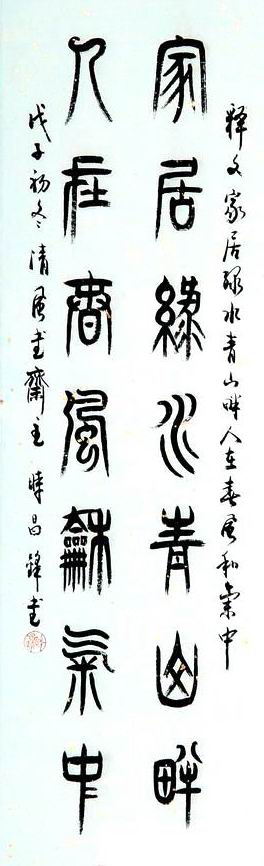 释文家居绿水青山畔人在春风和气中
家居綠水青山畔
人在春風龢氣中
戊子初冬清风书齋主 时昌锋书